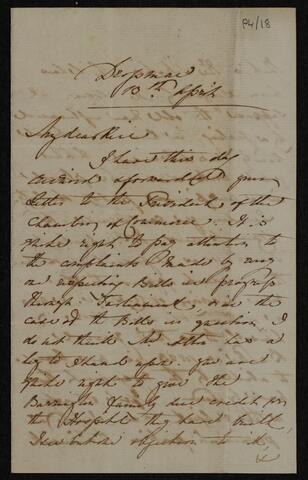 P4/18
Dromore
13th April
My dear Sir
I have this day
received & forwarded your
letter to the President of the
Chamber of Commerce. It is
quite right to pay attention to
the complaints made by any
one respecting Bills in progress
through Parliament, in the
case of the Bills in question I
do not think the other has a
leg to stand upon. You are
quite right to give the
Barrington family due credit for
the Hospital they have built,
objection to the